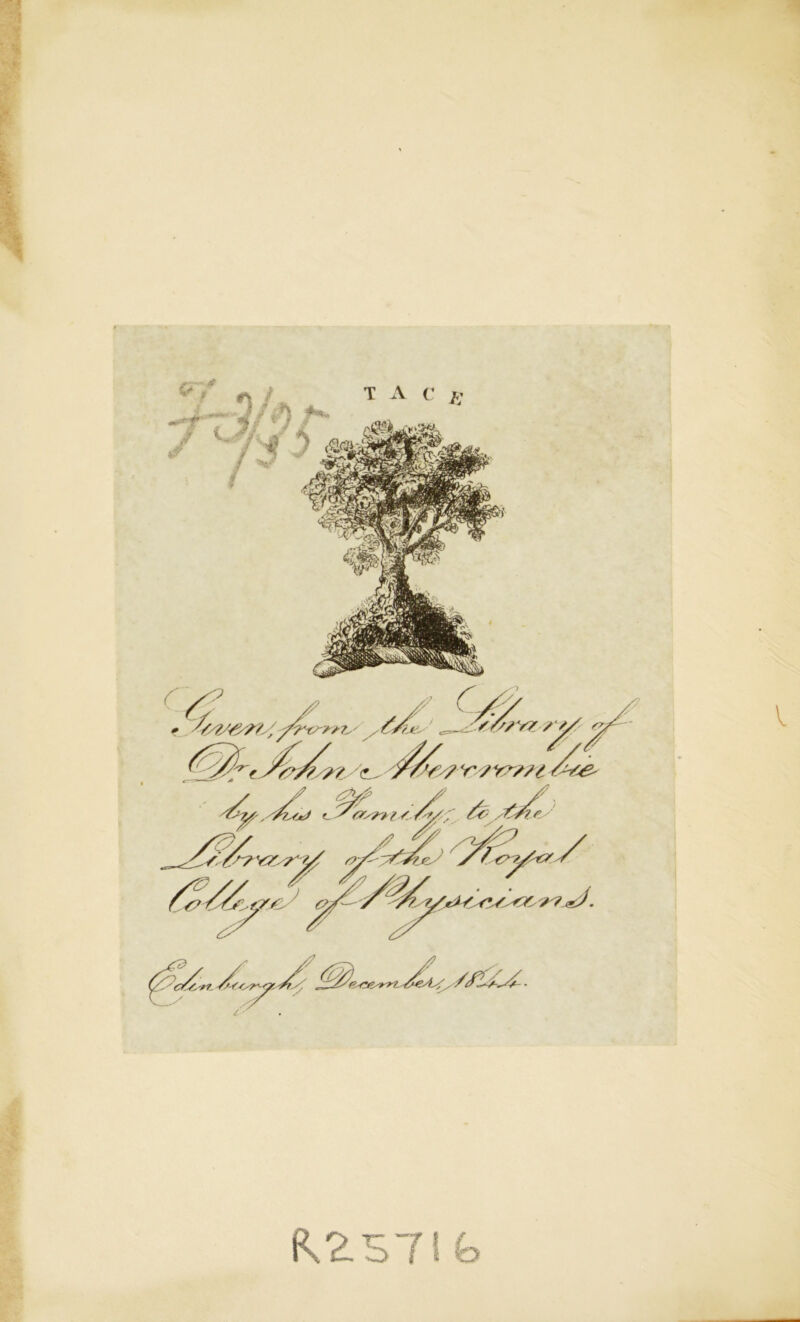 TACE
Given, from the Library of
Dr John Abercrombie
by his Family, to the
Library of the Royal
College of Physicians.
Edinburgh, December, 1844.
R25716